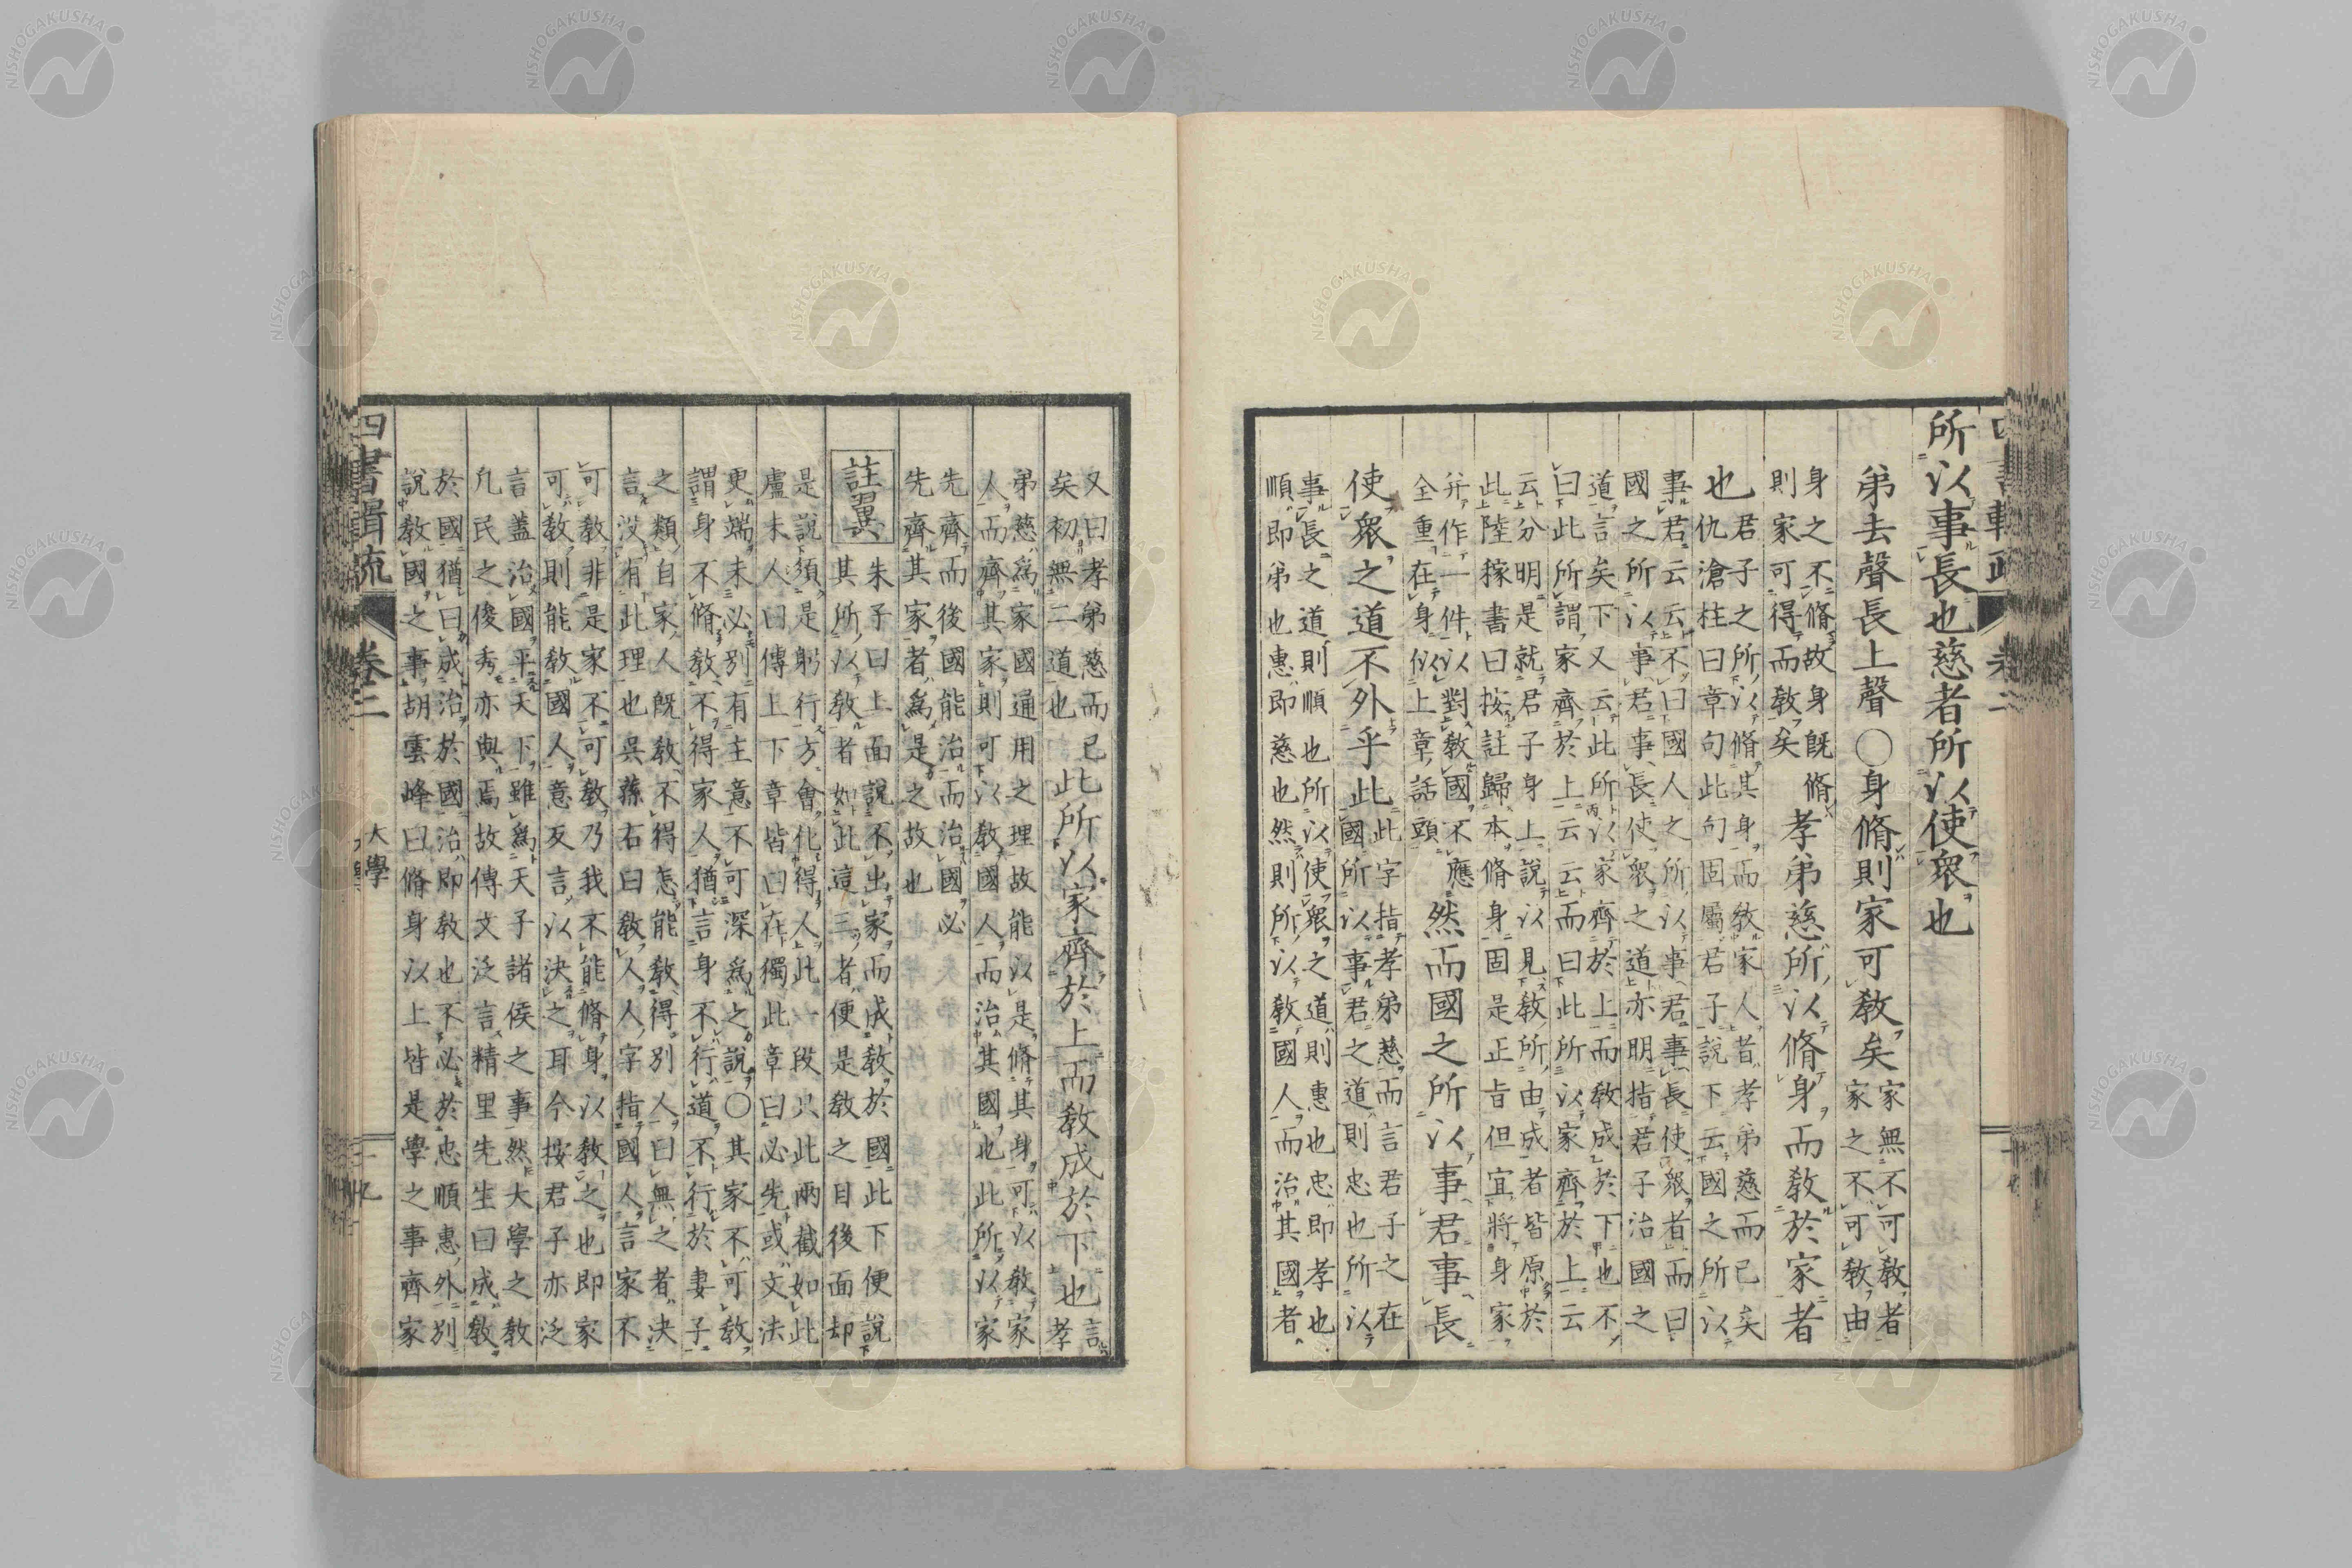 所以事長也慈者所以使衆也
弟去聲長上聲○身脩則家可教矣
家無不可教者
家之不可教由
身之不脩故身既脩
則家可得而教矣
孝弟慈所以脩身而教於家者
也
君子之所以脩其身而教家人者孝弟慈而已矣
仇滄柱曰章句此句固屬君子說下云國之所以
事君云云不曰國人之所以事君事長使衆者而曰
國之所以事君事長使衆之道亦明指君子治國之
道言矣下又云此所以家齊於上而教成於下也不
曰此所謂家齊於上云云而曰此所以家齊於上云
云分明是就君子身上說以見教所由成者皆原於
此陸稼書曰按註歸本脩身固是正旨但宜將身家
并作一件以對教國不應
全重在身似上章話頭
然而國之所以事君事長
使衆之道不外乎此
此字指孝弟慈而言君子之在
國所以事君之道則忠也所以
事長之道則順也所以使衆之道則惠也忠即孝也
順即弟也惠即慈也然則所以教國人而治其國者
又曰孝弟慈而已
矣初無二道也
此所以家齊於上而教成於下也
言
孝
弟慈爲家國通用之理故能以是脩其身可以教家
人而齊其家則可以教國人而治其國也此所以家
先齊而後國能治而治國必
先齊其家者爲是之故也
註翼
朱子曰上面說不出家而成教於國此下便說
其所以教者如此這三者便是教之目後面却
是說須是躬行方會化得人此一段只此兩截如此
盧未人曰傳上下章皆曰在獨此章曰必先或文法
更端未必別有主意不可深爲之說○其家不可教
謂身不脩教不得家人猶言身不行道不行於妻子
之類自家人既教不得怎能教得別人曰無之者決
言沒有此理也吳蓀右曰教人人字指國人言家不
可教非是家不可教乃我不能脩身以教之也即家
可教則能教國人意反言以決之耳今按君子亦泛
言蓋治國平天下雖爲天子諸侯之事然大學之教
凡民之俊秀亦與焉故傳文泛言精里先生曰成教
於國猶曰成治於國治即教也不必於忠順惠外別
說教國之事胡雲峰曰脩身以上皆是學之事齊家
四書輯疏
卷二
大學